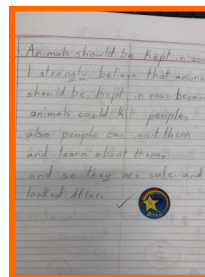 Animals should be kept in zoos
I strongly believe that animal
should be kept in zoos becau
animals could kill people,
also people can visit them
and learn about them,
and so they are safe and
looked After.